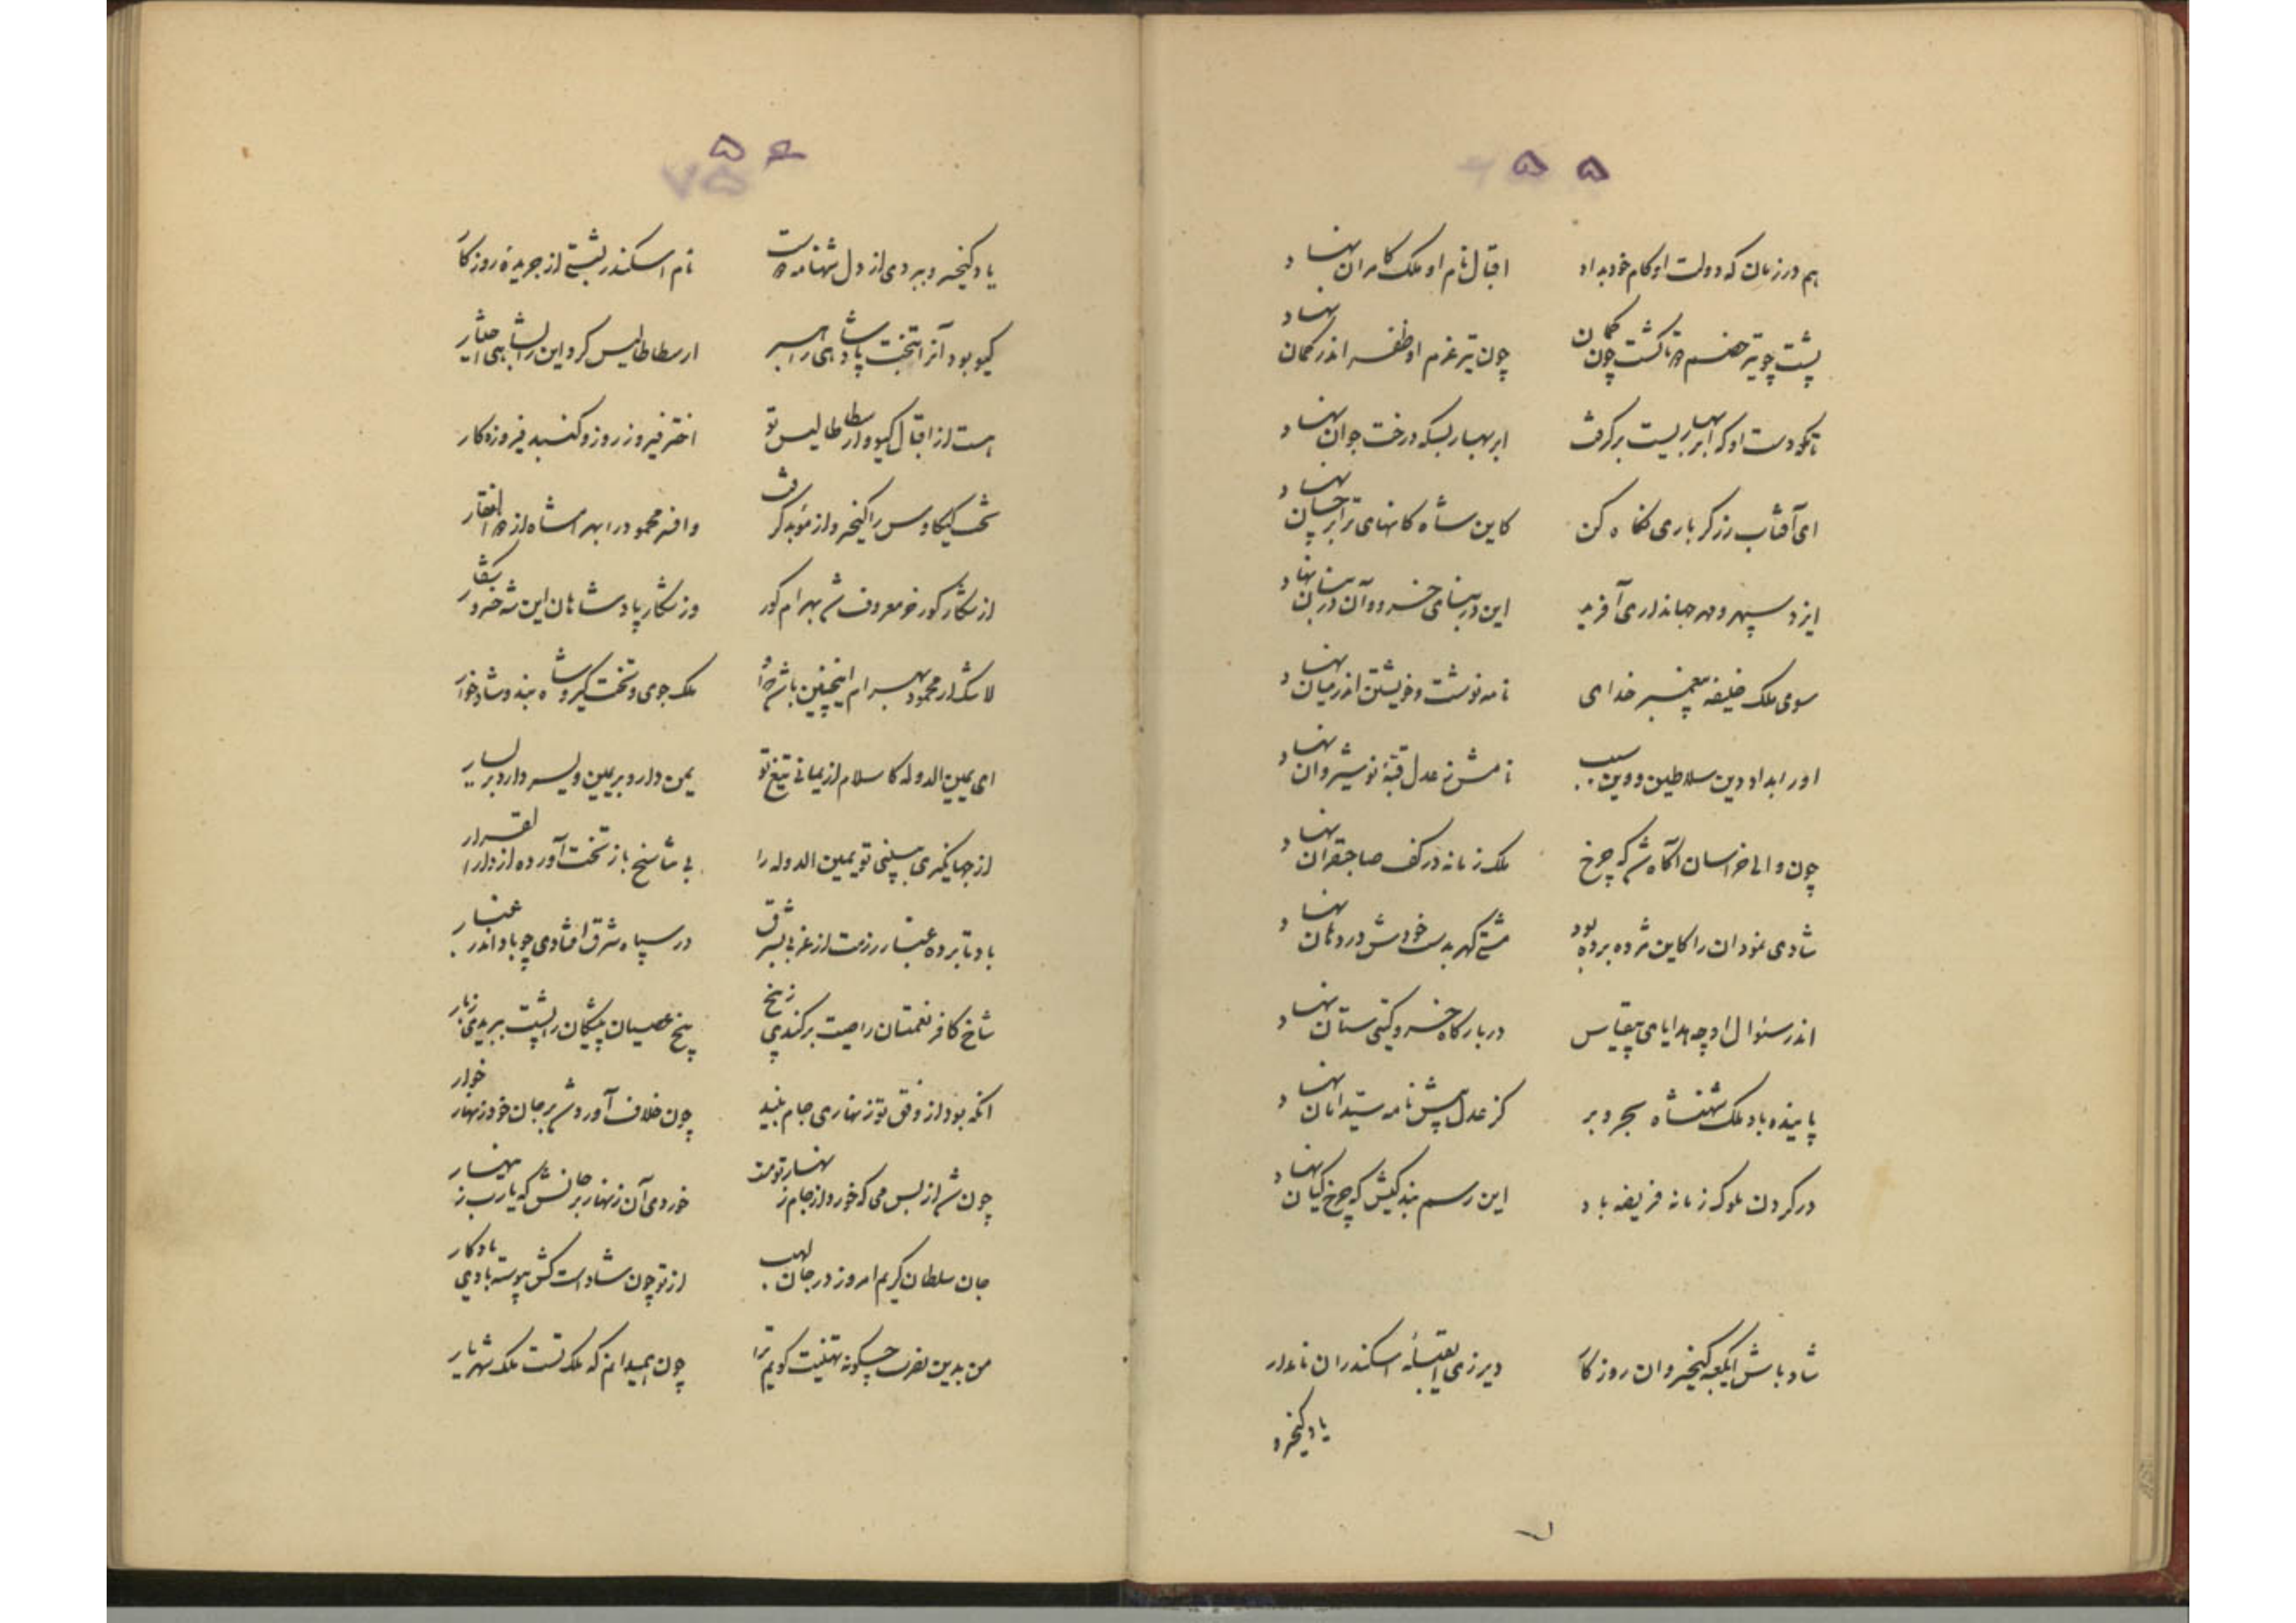 ۵۵
هم در زمان که دولت او کام خود بداد اقبال نام او ملک کامران نهاد
پشت چو تیر خصم دوتا گشت چون کمان چون تیر عزم او ظفر اندر کمان نهاد
تا کو دست او که ابر بهاریست برگرفت ابر بهار بسکه درخت جوان نهاد
ای آفتاب زرگر باری نگاه کن کاین شاه کانهای ترا بر جهان نهاد
ایزد سپهر و مهر جهانداری آفرید این در بنای خسرو و آن در بنان نهاد
سوی ملک خلیفه پیغمبر خدای نامه نوشت و خویشتن اندر میان نهاد
او را بداد دین سلاطین و وین سبب نامش ز عدل قبهٔ نوشیروان نهاد
چون والی خراسان آگاه شد که چرخ ملک زمانه در کف صاحبقران نهاد
شادی نمود آن را کاین مژده برده بود مشتی گهر بدست خودش در دهان نهاد
اندر سئوال او چه هدایای بیقیاس در بارگاه خسرو گیتی ستان نهاد
پاینده باد ملک شهنشاه بحر و بر کز عدل پیش نامه سید امان نهاد
در گردن ملوک زمانه فریضه باد این رسم بندگیش که چرخ کیان نهاد
شاد باش ای کعبه کیخسروان روزگار دیر زی ای قبلهٔ اسکندران نامدار
یاد کیخسرو
۵۶
یاد کیخسرو ببردی از دل شهنامه دوست نام اسکندر بشستی از جریدهٔ روزگار
گیو بود آنرا بتخت پادشاهی راهبر ارسطاطالیس کرد این را بشاهی اختیار
هست از اقبال گیو و ارسطاطالیس تو اختر فیروز روز و گنبد فیروزه کار
تخت کیکاوس را کیخسرو از موبد گرفت وافسر محمود را بهرامشاه از افتخار
از شکار گور خر معروف شد بهرام گور وز شکار پادشاهان این شه خسرو تبار
لاشک از محمود بهرام اینچنین باشد ملک جوی و تخت گیر و شاه بند و شاد خوار
ای یمین الدوله کاسلام از یمانی تیغ تو یمن دارد بر یمین و یسر دارد بر یسار
از جهانگیری ببینی تو یمین الدوله را بی شاسخ باز تخت آورده از دارالقرار
باد تا برده غبار رزمت از غربی بشرق در سپاه شرق افتادی چو باد اندر غبار
شاخ کافر نعمتان را صیت برکندی ز بیخ بیخ عصیان پیشگان را پشت ببریدی ز بار
آنکه بود از وفق تو زنهاری جام نبید چون خلاف آورد شد بر جان خود زنهار خوار
چون شد از بس می که خورد از جام زنهار تو مست خوردی آن زنهار بر جانش که یارب زینهار
جان سلطان کریم امروز در جان لهب از تو چون شاد است کش پیوسته بادی یادگار
من بدین نصرت چگونه تهنیت گویم ترا چون همیدانم که ملک تست ملک شهریار